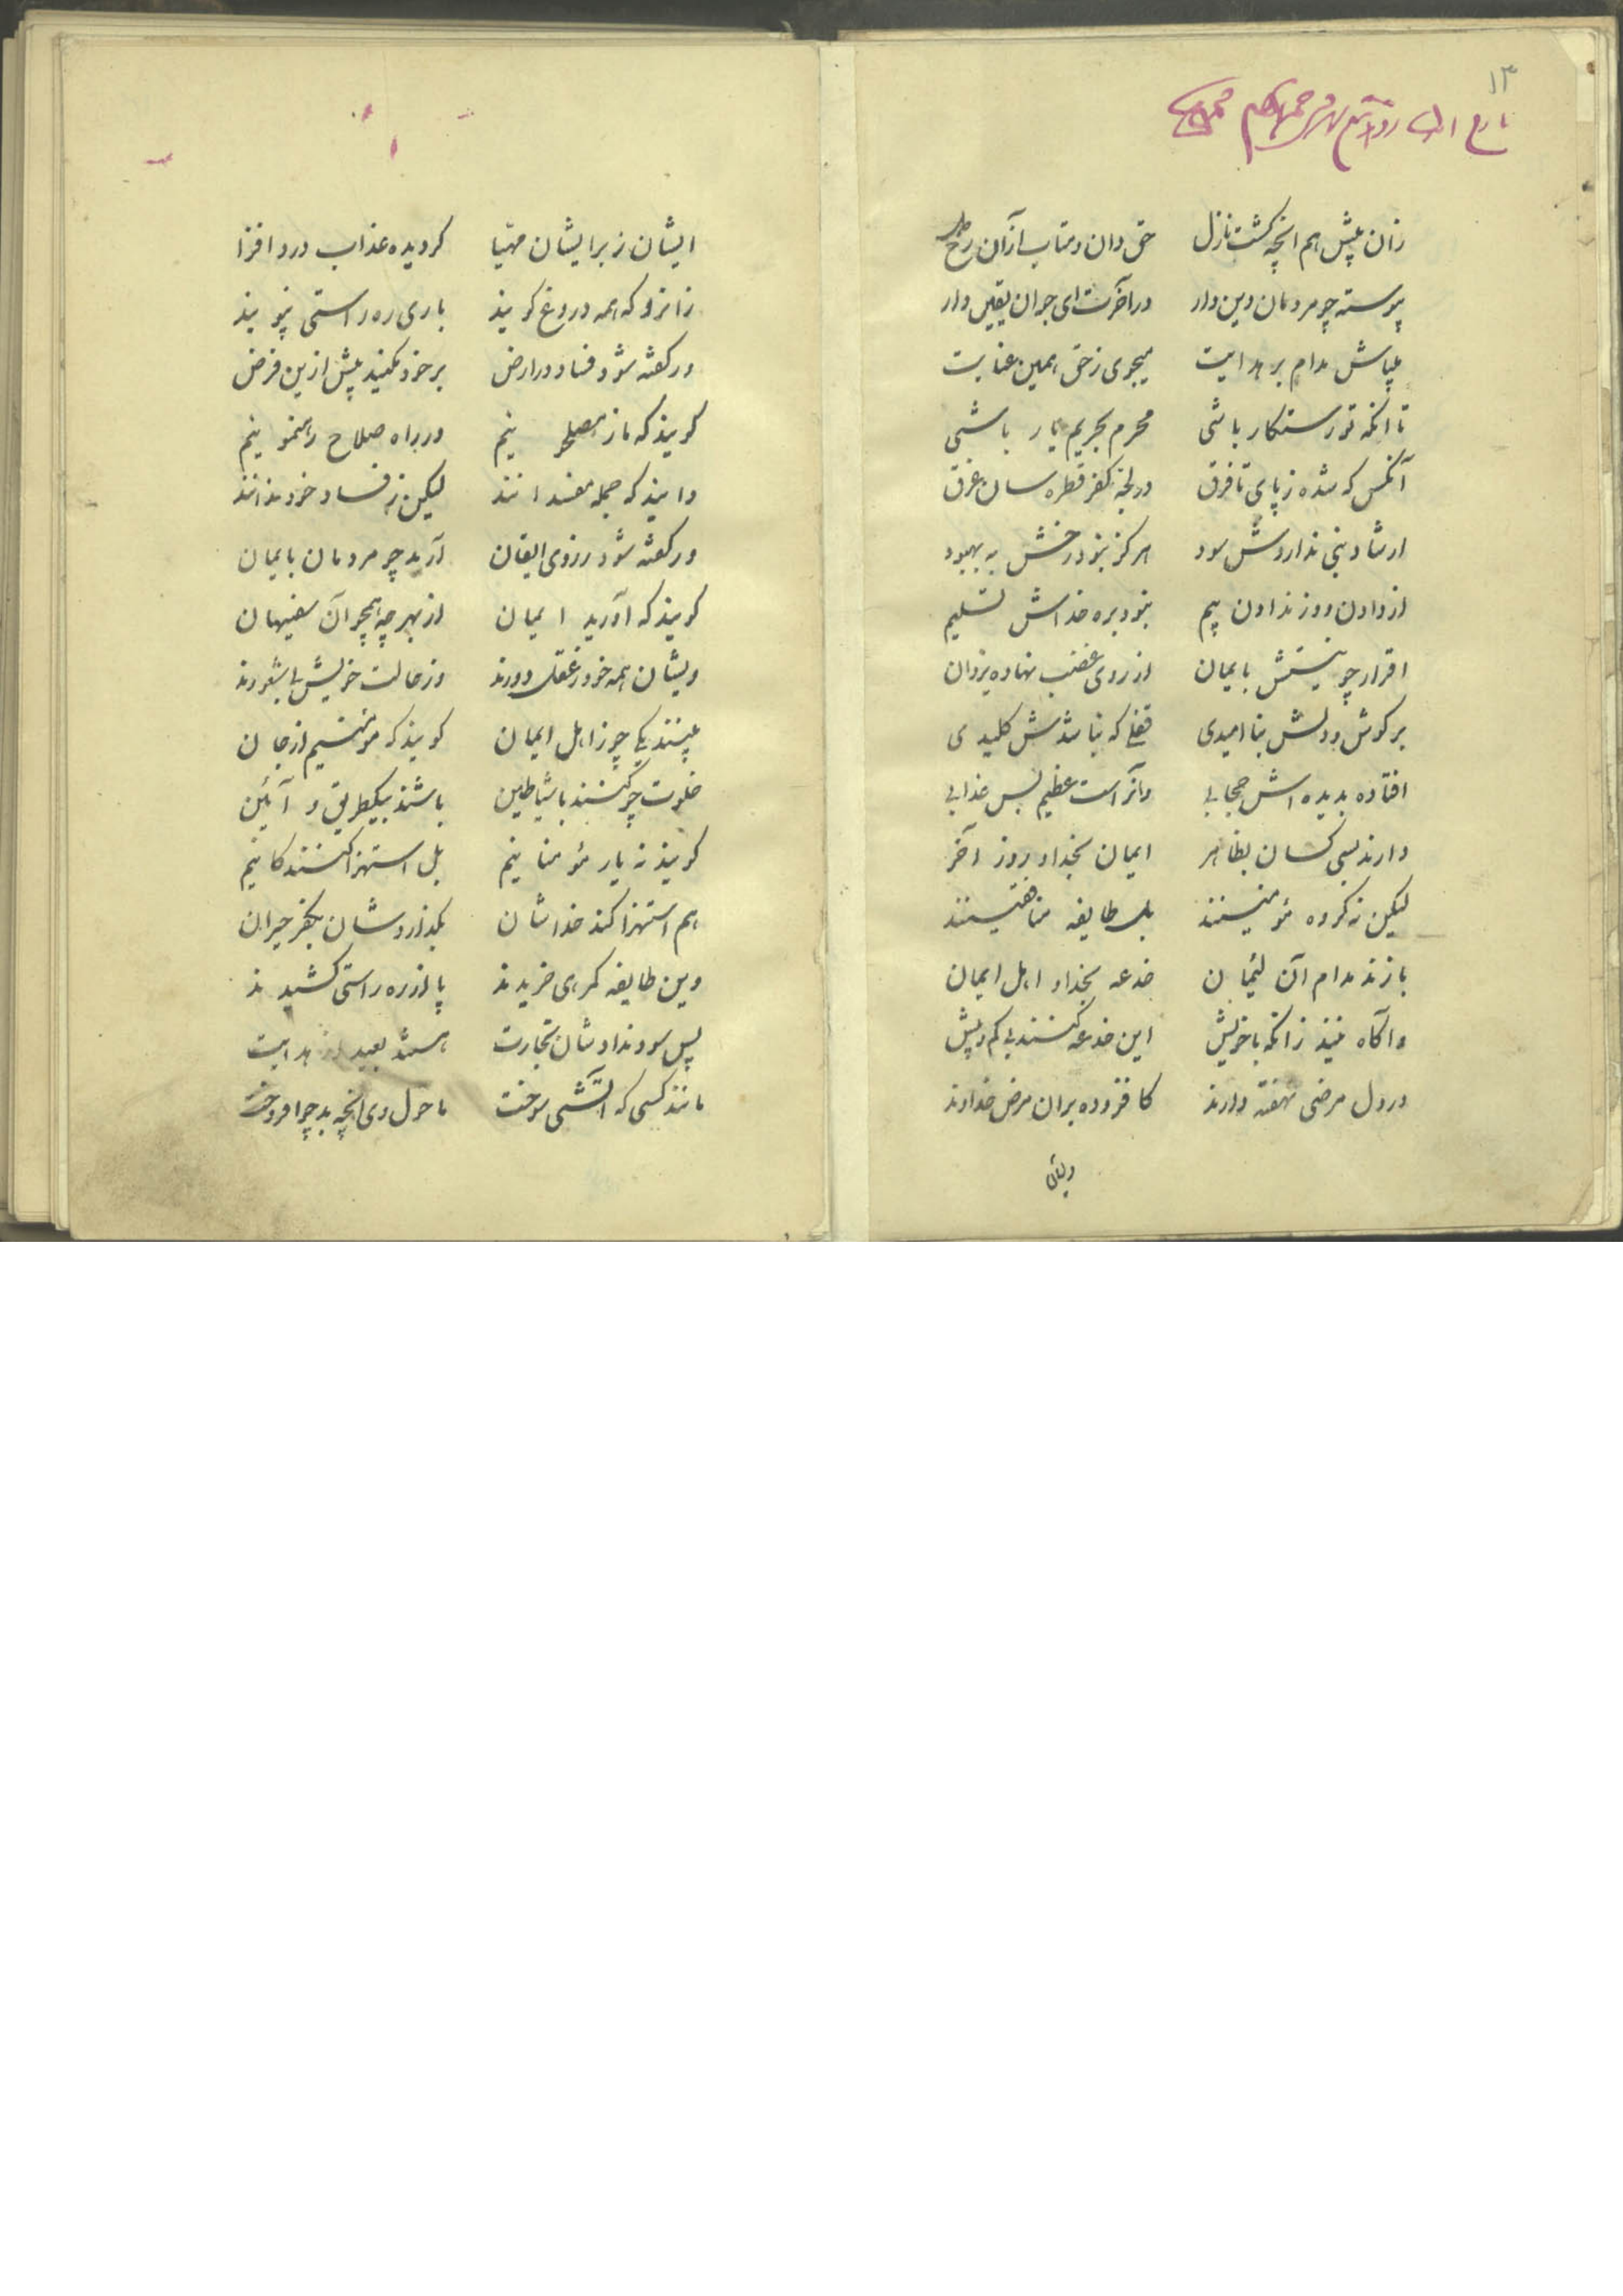 ۱۳
زان پیش هم انچه کشت نازل حق دان و متاب ازان رخ
پیوسته چو مردمان دین دار در آخرت ای جوان یقین دار
میباش مدام بر هدایت میجوی ز حق همین عنایت
تا انکه تو رستکار باشی محرم بحریم یار باشی
آنکس که شده ز پای تا فرق در لجه کفر قطره سان غرق
ارشاد نبی نداردش سود هرکز نبود رخش به بهبود
از دادن و وز ندادن بیم نبود بره خداش تسلیم
اقرار چو نیستش بایمان از روی غضب نهاده یزدان
بر کوش و دلش بنا امیدی قفلی که نباشدش کلیدی
افتاده بدیده اش حجابی وانراست عظیم بس عذابی
دارند بسی کسان بظاهر ایمان بخدا و روز آخر
لیکن نه کروه مؤمنینند بل طایفه منافقینند
بازند مدام آن لئیمان خدعه بخدا و اهل ایمان
و آکاه نیند زانکه با خویش این خدعه کنند بی کم و بیش
در دل مرضی نهفته دارند کافزوده بران مرض خداوند
ایشان ز برایشان مهیا کردیده عذاب درد افزا
زانرو که همه دروغ کویند باری ره راستی نپویند
ور کفته شود فساد در ارض بر خود مکنید پیش ازین فرض
کویند که ما ز مصلحونیم در راه صلاح رهنمونیم
دانید که جمله مفسدانند لیکن ز فساد خود ندانند
ور کفته شود ز روی ایقان آرید چو مردمان بایمان
کویند که آورید ایمان از بهر چه همچو آن سفیهان
ویشان همه خود ز عقل دورند وز حالت خویش بی شعورند
بینند یکی چو ز اهل ایمان کویند که مؤمنیم از جان
خلوت چو کنند با شیاطین باشند بیکطریق و آئین
کویند نه یار مؤمنانیم بل استهزا کنندکانیم
هم استهزا کند خداشان بکذاردشان بکفر حیران
وین طایفه کمرهی خریدند پا از ره راستی کشیدند
پس سود نداد شان تجارت هستند بعید از هدایت
مانند کسی که آتشی سوخت ما حول وی انچه بد چو افروخت